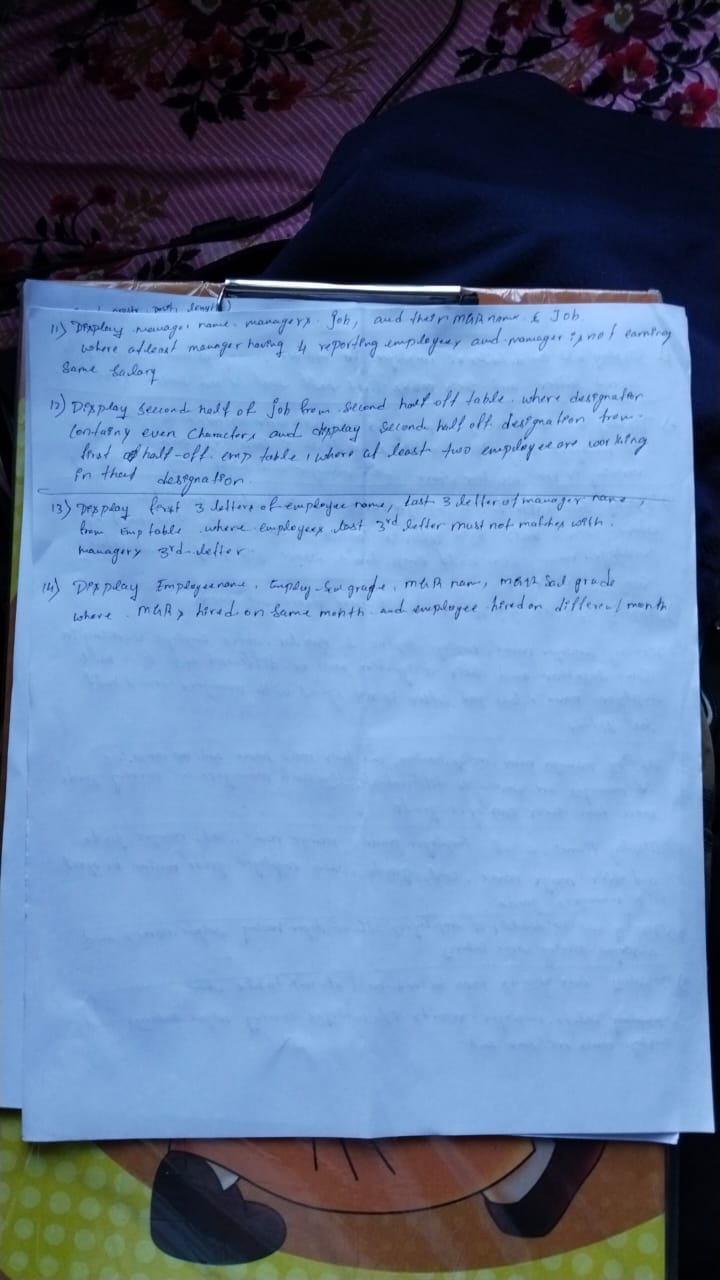 11) Display manager name. managers Job, and their MGR name & Job.
where atleast manager having 4 reporting employees and manager is not earning
Same Salary
12) Display second half of job from second half off table. where designation
Contains even Characters and display second half off designation from
first of half-off emp table, where at least two employee are working
in that designation.
13) Display first 3 letters of employee name, last 3 letter of manager name,
from Emp table where employees last 3rd letter must not matches with
managers 3rd letter
14) Display Employee name, Employ-Sal grade, MGR name, MGR Sal grade
where MGRs hired on Same month and employee hired on different month